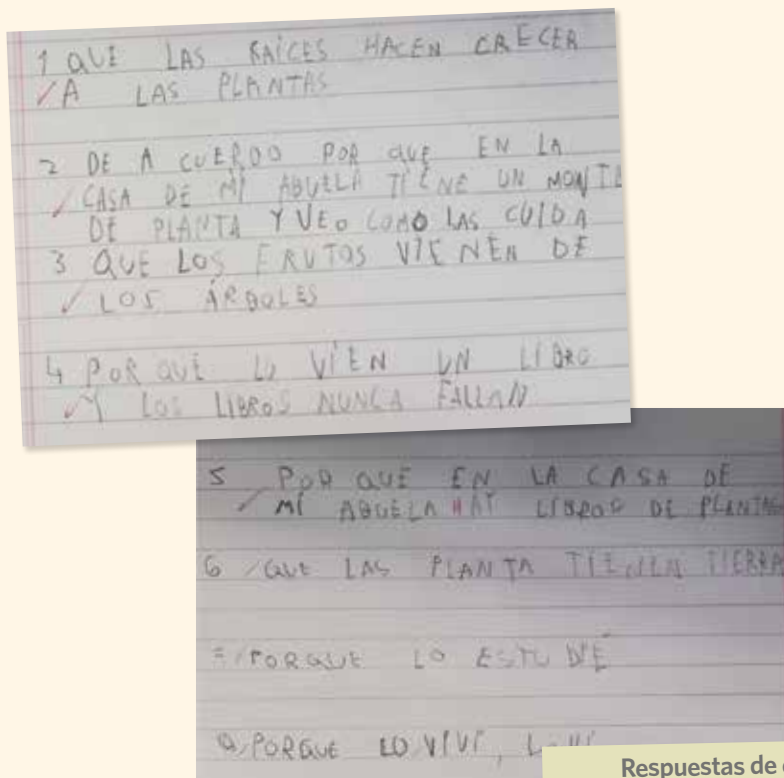 1 QUE LAS RAÍCES HACEN CRECER
A LAS PLANTAS
2 DE A CUERDO POR QUE EN LA
CASA DE MÍ ABUELA TIENE UN MONTE
DE PLANTA Y VEO COMO LAS CUIDA
3 QUE LOS FRUTOS VIENEN DE
LOS ÁRBOLES
4 POR QUE LO VÍ EN UN LIBRO
Y LOS LIBROS NUNCA FALLAN
5 POR QUE EN LA CASA DE
MÍ ABUELA HAY LIBROS DE PLANTAS
6 QUE LAS PLANTA TIENEN TIERRA
PORQUE LO ESTUDIÉ
PORQUE LO VIVÍ,
Respuestas de